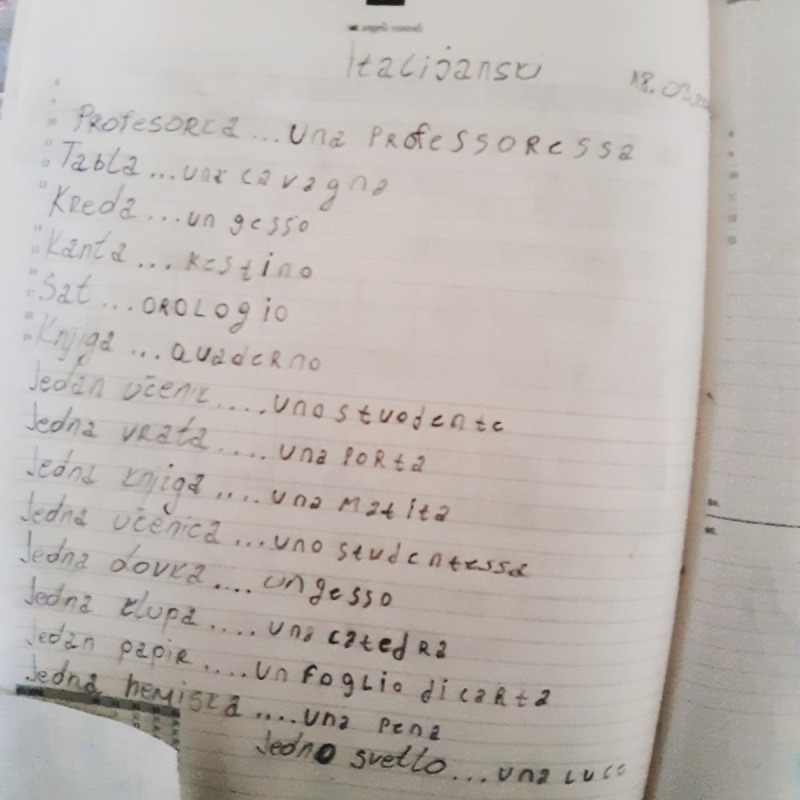 Italijanski
18.09.
Profesorka ... una professoressa
Tabla ... una lavagna
Kreda ... un gesso
Kanta ... kestino
Sat ... orologio
Knjiga ... quaderno
Jedan učenik .... uno stuodente
Jedna vrata .... una porta
Jedna knjiga .... una matita
Jedna učenica ... uno studentessa
Jedna dovka .... un gesso
Jedna klupa .... una catedra
Jedan papir .... un foglio di carta
Jedna hemiska .... una pena
Jedno svetlo ... una luce